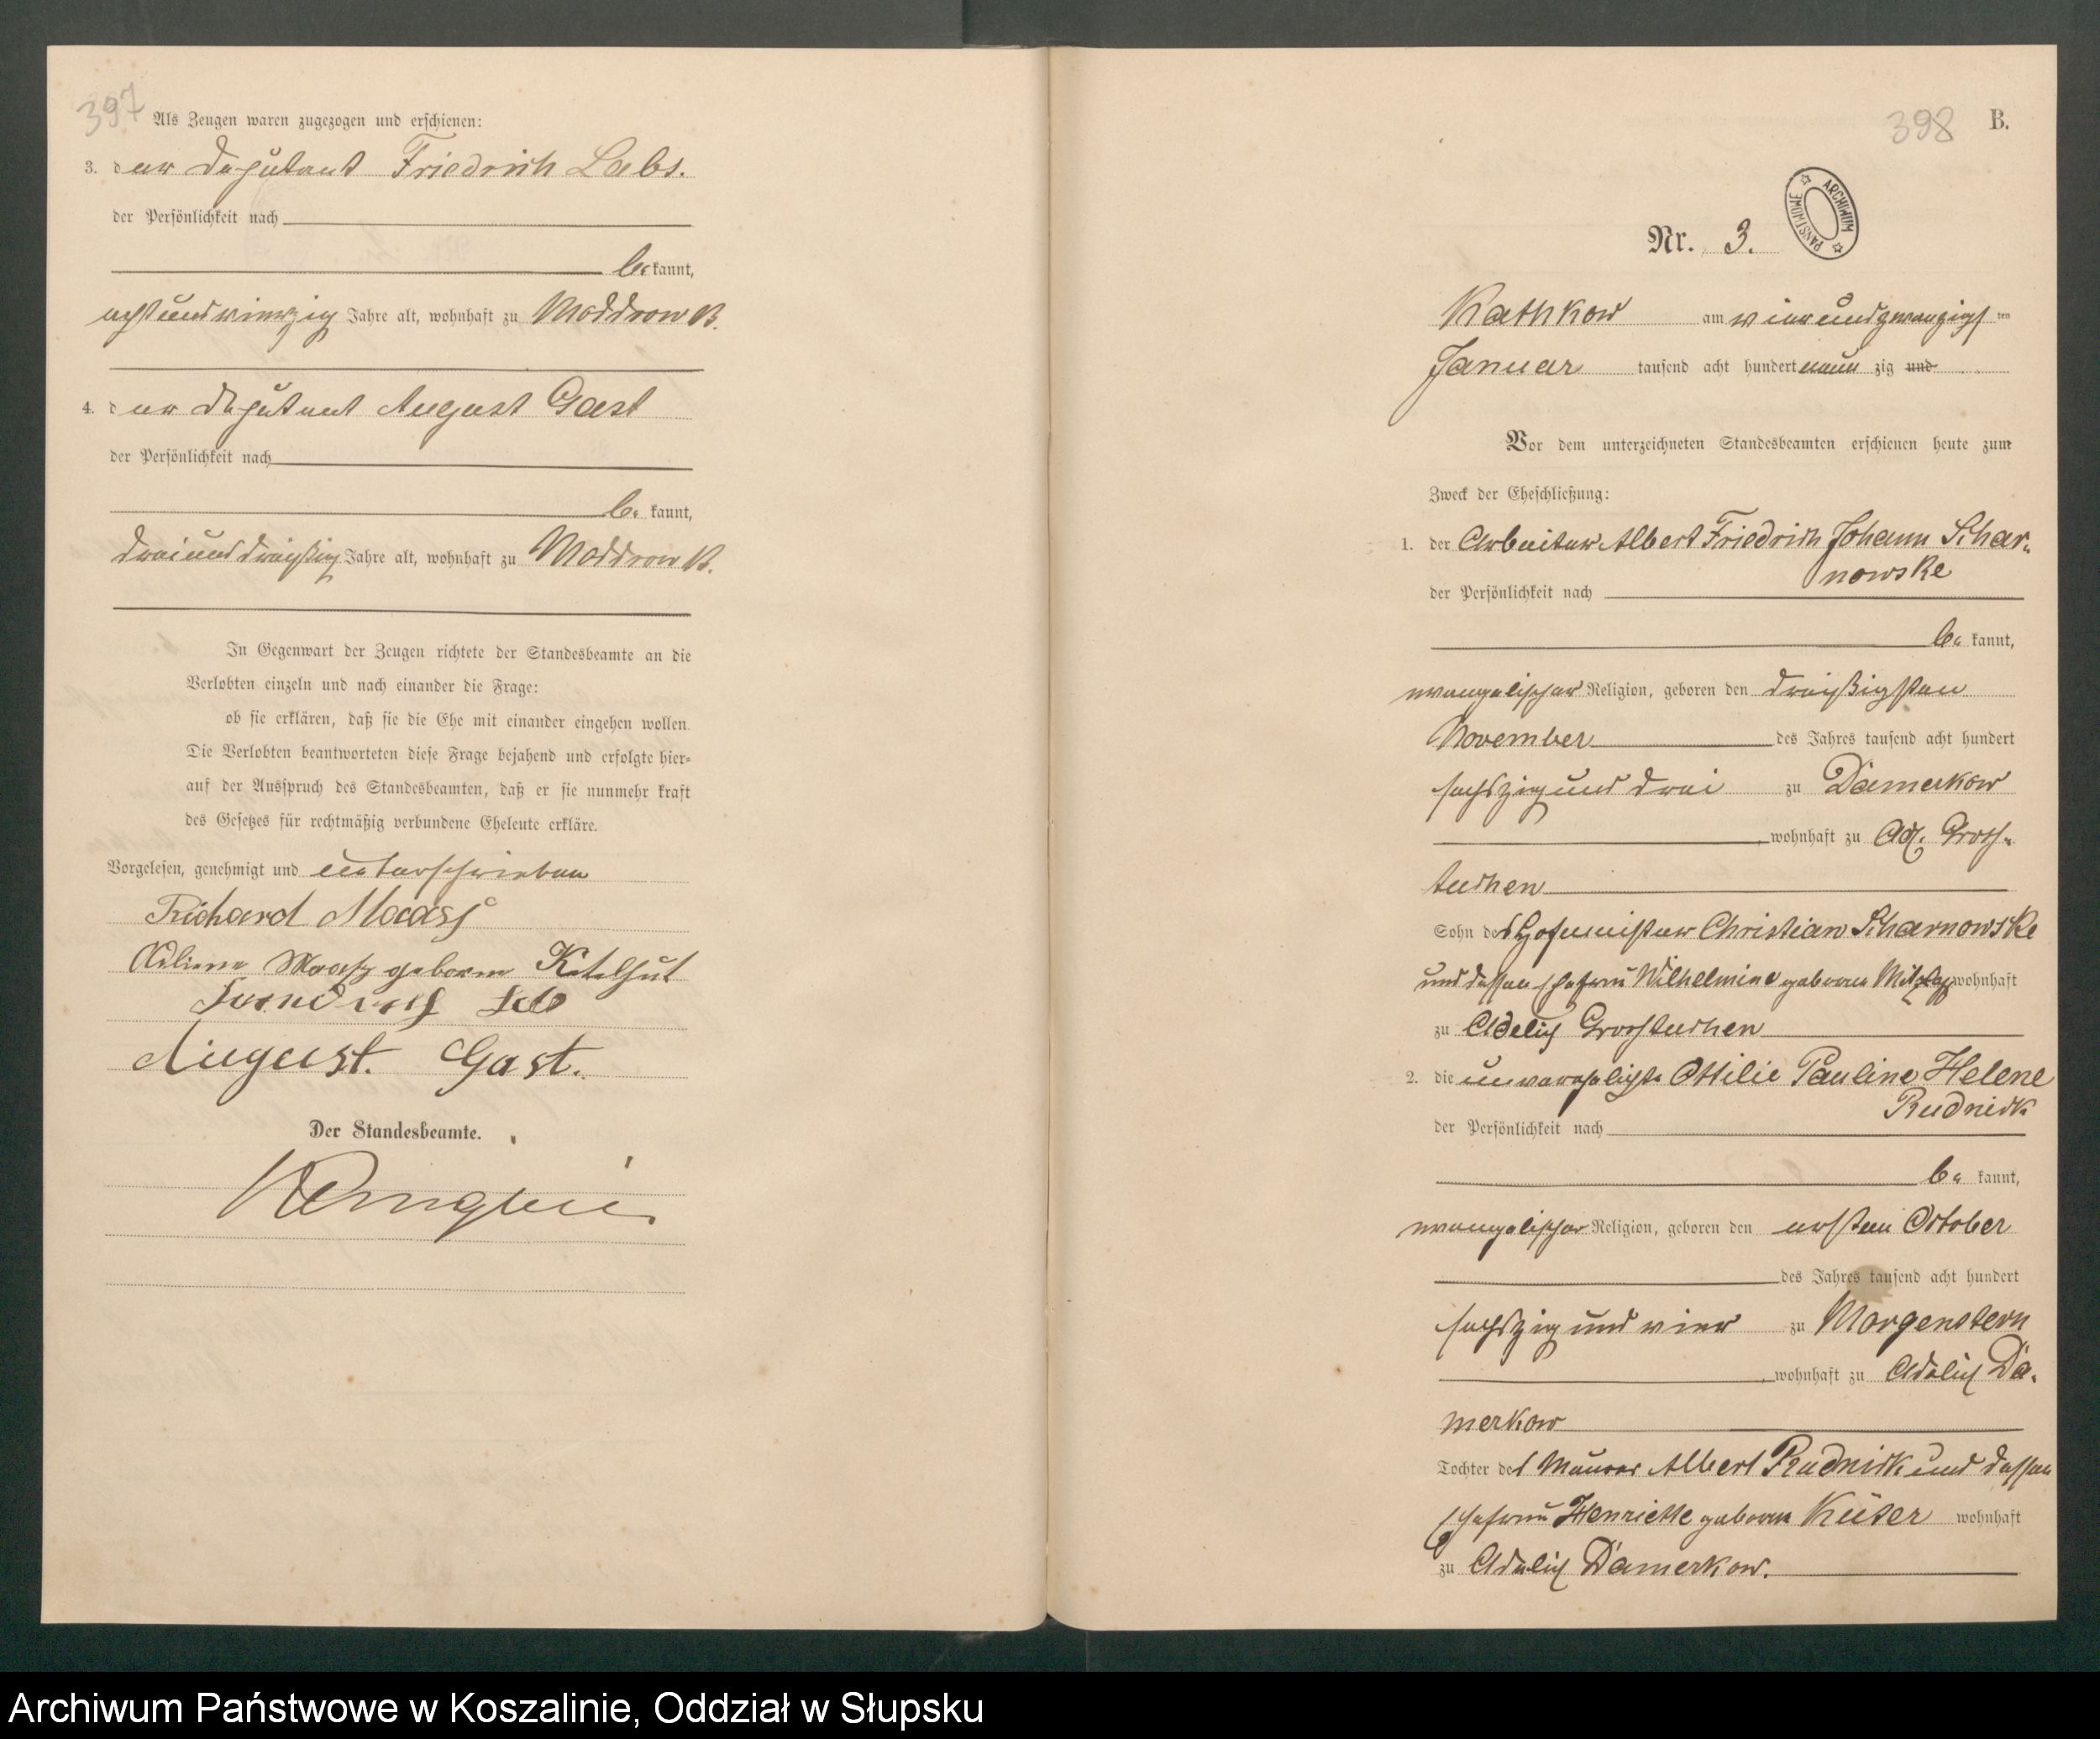 397
Als Zeugen waren zugezogen und erschienen:
3. der Deputant Friedrich Labs.
der Persönlichkeit nach
be kannt,
achtundvierzig Jahre alt, wohnhaft zu Moddrow B.
4. der Deputant August Gast
der Persönlichkeit nach
be kannt,
dreiunddreißig Jahre alt, wohnhaft zu Moddrow B.
In Gegenwart der Zeugen richtete der Standesbeamte an die
Verlobten einzeln und nach einander die Frage:
ob sie erklären, daß sie die Ehe mit einander eingehen wollen.
Die Verlobten beantworteten diese Frage bejahend und erfolgte hier-
auf der Ausspruch des Standesbeamten, daß er sie nunmehr kraft
des Gesetzes für rechtmäßig verbundene Eheleute erkläre.
Vorgelesen, genehmigt und unterschrieben
Richard Maass
Maaß geborne Katelhut
August. Gast.
Der Standesbeamte.
398 B.
ARCHIWUM PAŃSTWOWE
Nr. 3.
Kathkow am vierundzwanzigst ten
Januar tausend acht hundert neun zig und
Vor dem unterzeichneten Standesbeamten erschienen heute zum
Zweck der Eheschließung:
1. der Arbeiter Albert Friedrich Johann Schar-
nowske
der Persönlichkeit nach
be kannt,
evangelischer Religion, geboren den dreißigsten
November des Jahres tausend acht hundert
sechszig und drei zu Damerkow
, wohnhaft zu Adl. Gross-
tuchen
Sohn des Hofmeister Christian Scharnowske
und dessen Ehefrau Wilhelmine geborne wohnhaft
zu Adelig Grosstuchen
2. die unverehelichte Ottilie Pauline Helene
Rudnick
der Persönlichkeit nach
be kannt,
evangelischer Religion, geboren den ersten October
des Jahres tausend acht hundert
sechszig und vier zu Morgenstern
, wohnhaft zu Adelich Da-
merkow
Tochter des Maurer Albert Rudnick und dessen
Ehefrau Henriette geborne Küter wohnhaft
zu Adelich Damerkow.
Archiwum Państwowe w Koszalinie, Oddział w Słupsku